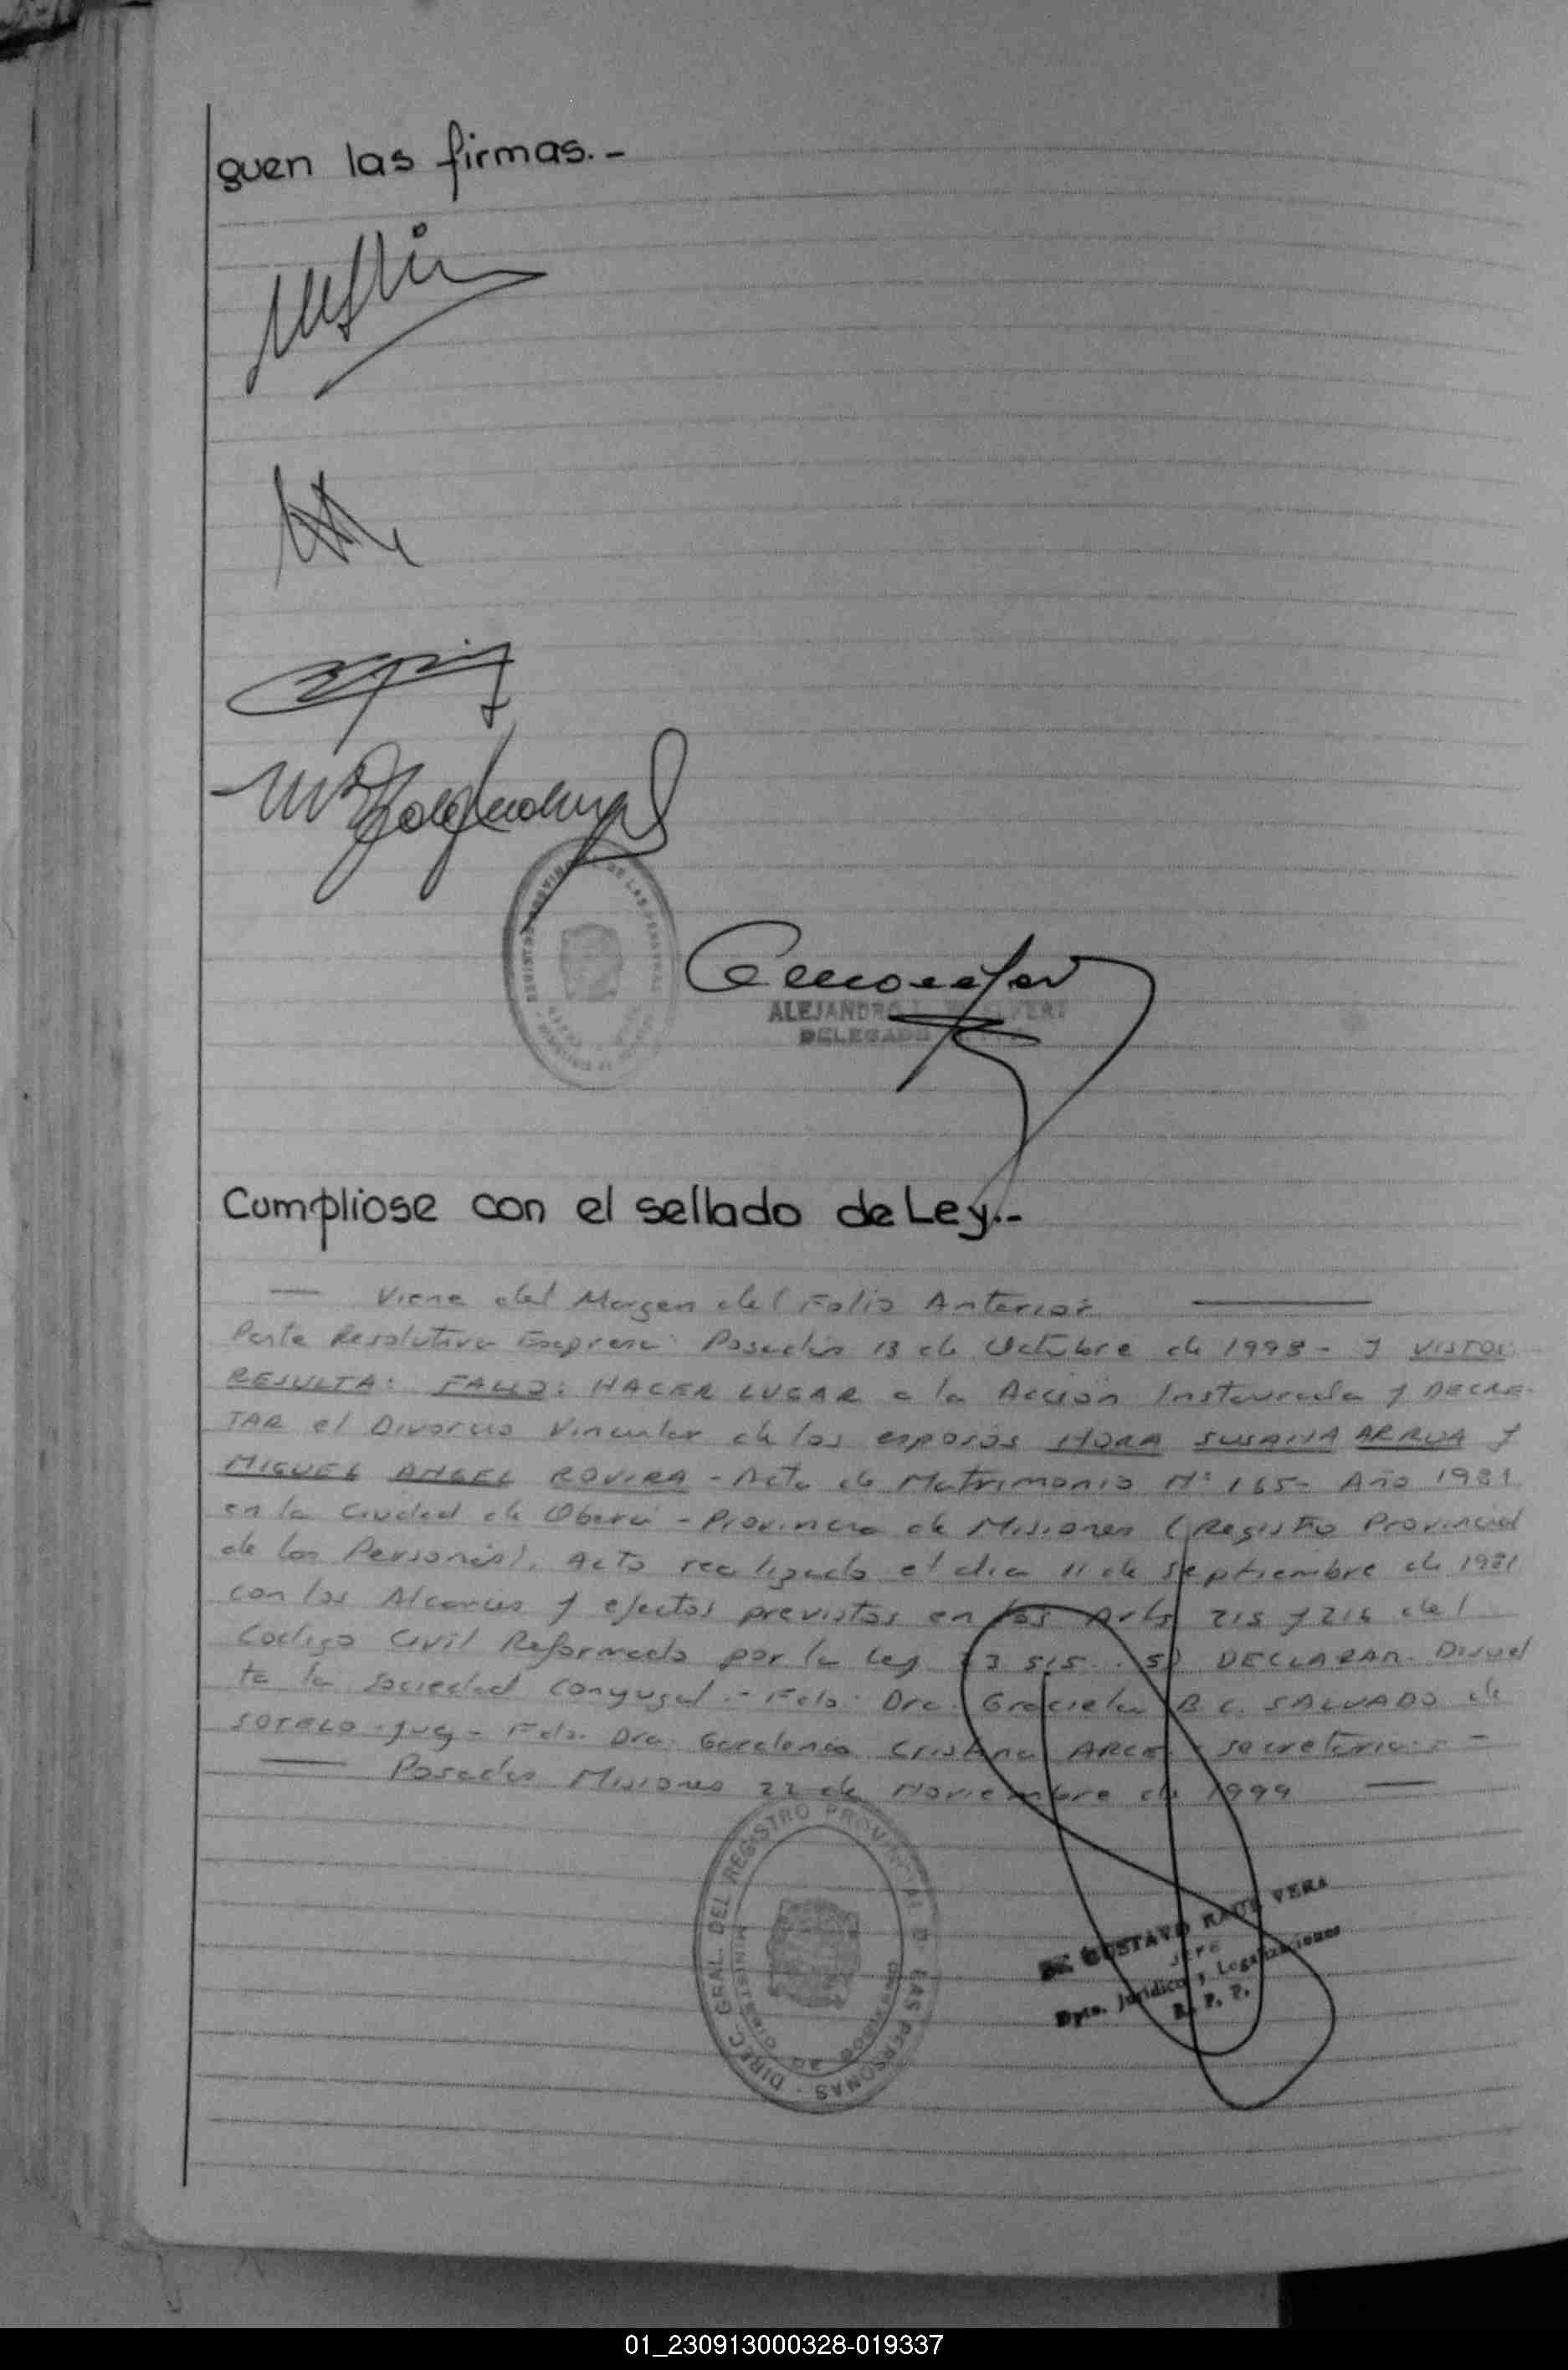 guen las firmas.-
ALEJANDRO
DELEGADO
Cumpliose con el sellado de Ley.-
— Viene del Margen del Folio Anterior —
Parte Resolutiva Expresa: Posadas 13 de Octubre de 1998 - Y VISTOS:
RESULTA: FALLO: HACER LUGAR a la Acción Instaurada y DECRE-
TAR el Divorcio Vincular de los esposos NORA SUSANA ARRUA Y
MIGUEL ANGEL ROVIRA - Acta de Matrimonio Nº 165- Año 1981
en la Ciudad de Oberá - Provincia de Misiones (Registro Provincial
de las Personas). Acto realizado el dia 11 de septiembre de 1981
con los Alcances y efectos previstos en los Arts 215 y 216 del
Codigo Civil Reformado por la Ley 23.515.. 5) DECLARAR Disuel
ta la sociedad conyugal.- Fdo: Dra. Graciela B. C. SALVADO de
SOTELO - Juez - Fdo. Dra. Cristina ARCE - secretaria.-
— Posadas Misiones 22 de Noviembre de 1999 —
DIREC. GRAL. DEL REGISTRO PROVINCIAL DE LAS PERSONAS
MINISTERIO DE GOBIERNO
GUSTAVO RAUL VERA
JEFE
Dpto. Jurídico y Legalizaciones
R. P. P.
01_230913000328-019337